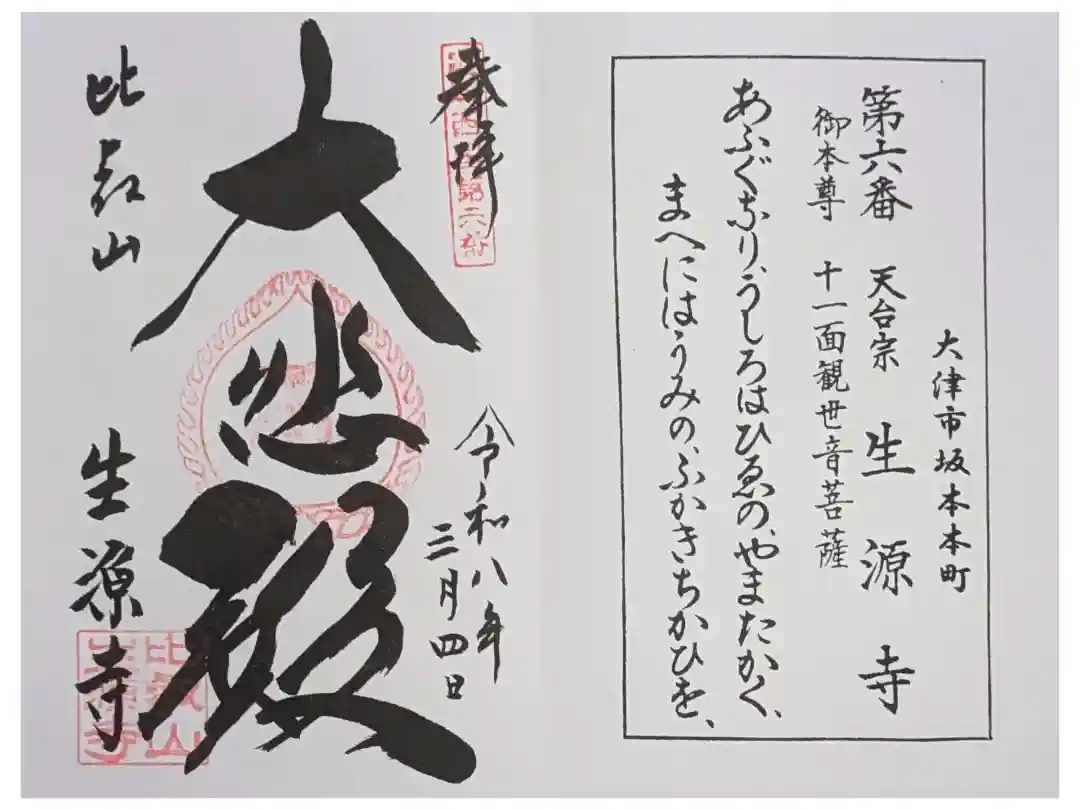 大津市坂本本町
第六番 天台宗 生源寺
御本尊 十一面観世音菩薩
あふぐなり、うしろはひゑの、やまたかく、
まへにはうみの、ふかきちかひを、
奉拝
第六番
令和八年
三月四日
大悲殿
比叡山 生源寺
比叡山
生源寺